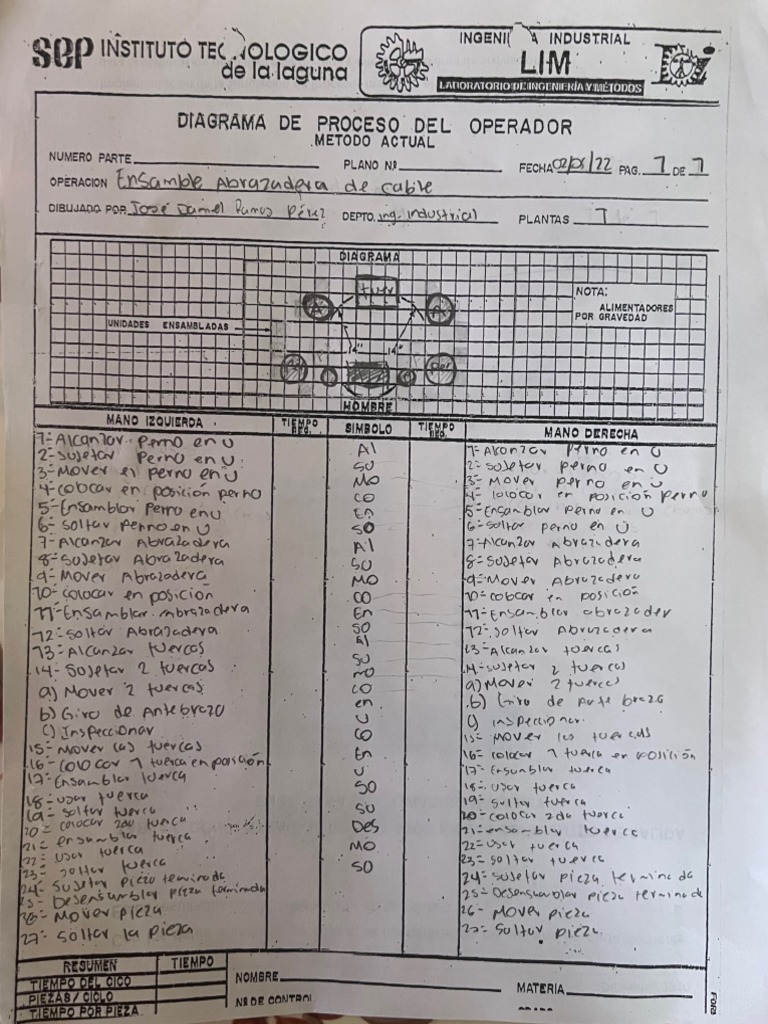 sep INSTITUTO TECNOLOGICO
de la laguna
INGENIERIA INDUSTRIAL
LIM
LABORATORIO DE INGENIERÍA Y MÉTODOS
DIAGRAMA DE PROCESO DEL OPERADOR
METODO ACTUAL
NUMERO PARTE PLANO Nº FECHA 02/05/22 PAG. 1 DE 1
OPERACION Ensamble Abrazadera de cable
DIBUJADO POR José Daniel Ramos Pérez DEPTO. ing. industrial PLANTAS 1
DIAGRAMA
NOTA:
ALIMENTADORES
POR GRAVEDAD
UNIDADES ENSAMBLADAS
tuer
A A
14" 14"
HOMBRE
MANO IZQUIERDA TIEMPO SIMBOLO TIEMPO MANO DERECHA
1- Alcanzar Perno en U Al 1- Alcanzar Perno en U
2- Sujetar Perno en U SU 2- Sujetar perno en U
3- Mover el perno en U MO 3- Mover perno en U
4- colocar en posición perno CO 4- colocar en posición perno
5- Ensamblar Perno en U En 5- Ensamblar Perno en U
6- Soltar Perno en U SO 6- Soltar perno en U
7- Alcanzar Abrazadera Al 7- Alcanzar Abrazadera
8- Sujetar Abrazadera SU 8- Sujetar Abrazadera
9- Mover Abrazadera MO 9- Mover Abrazadera
10- colocar en posición CO 10- colocar en posición
11- Ensamblar abrazadera En 11- Ensamblar abrazader
12- Soltar Abrazadera SO 12- Soltar Abrazadera
13- Alcanzar tuercas Al 13- Alcanzar tuercas
14- Sujetar 2 tuercas SU 14- Sujetar 2 tuercas
a) Mover 2 tuercas mo a) Mover 2 tuercas
b) Giro de Antebrazo co b) Giro de Ante brazo
c) Inspeccionar en c) Inspeccionar
15- Mover las tuercas U 15- Mover las tuercas
16- colocar 1 tuerca en posición CO 16- colocar 1 tuerca en posición
17- Ensamblar tuerca En 17- Ensamblar tuerca
18- usar tuerca U 18- usar tuerca
19- soltar tuerca SO 19- soltar tuerca
20- colocar 2da tuerca SU 20- colocar 2da tuerca
21- ensamblar tuerca Des 21- ensamblar tuerca
22- usar tuerca MO 22- Usar tuerca
23- soltar tuerca SO 23- soltar tuerca
24- Sujetar pieza terminada 24- Sujetar pieza terminada
25- Desensamblar pieza terminada 25- Desensamblar pieza terminad
26- Mover pieza 26- Mover pieza
27- Soltar la pieza 27- Soltar pieza
RESUMEN TIEMPO
TIEMPO DEL CICO
PIEZAS / CICLO
TIEMPO POR PIEZA
NOMBRE MATERIA
Nº DE CONTROL